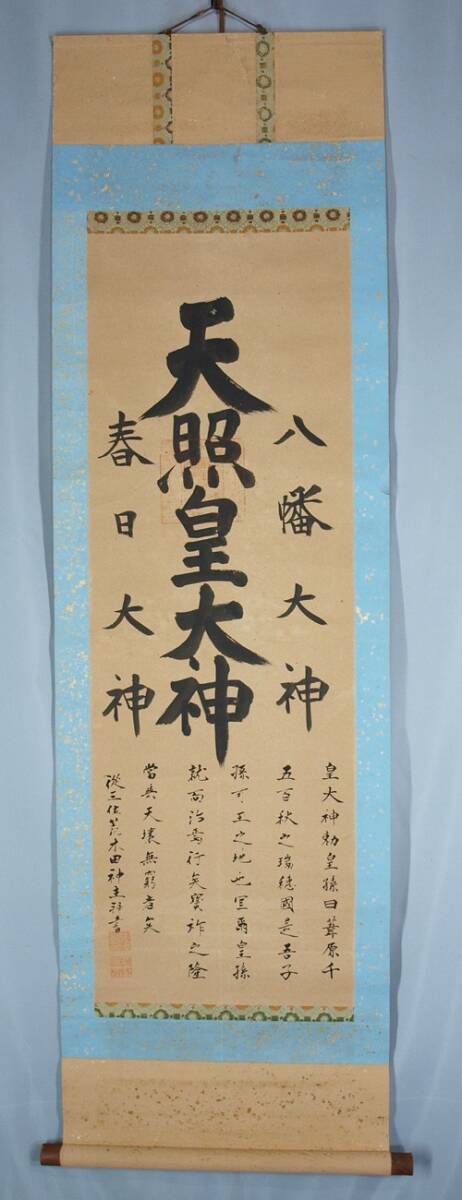 八幡大神
天照皇大神
春日大神
皇大神勅皇孫曰葦原千
五百秋之瑞穂國是吾子
孫可王之地也宜爾皇孫
就而治焉行矣寳祚之隆
當與天壌無窮者矣
従三位荒木田神主 書